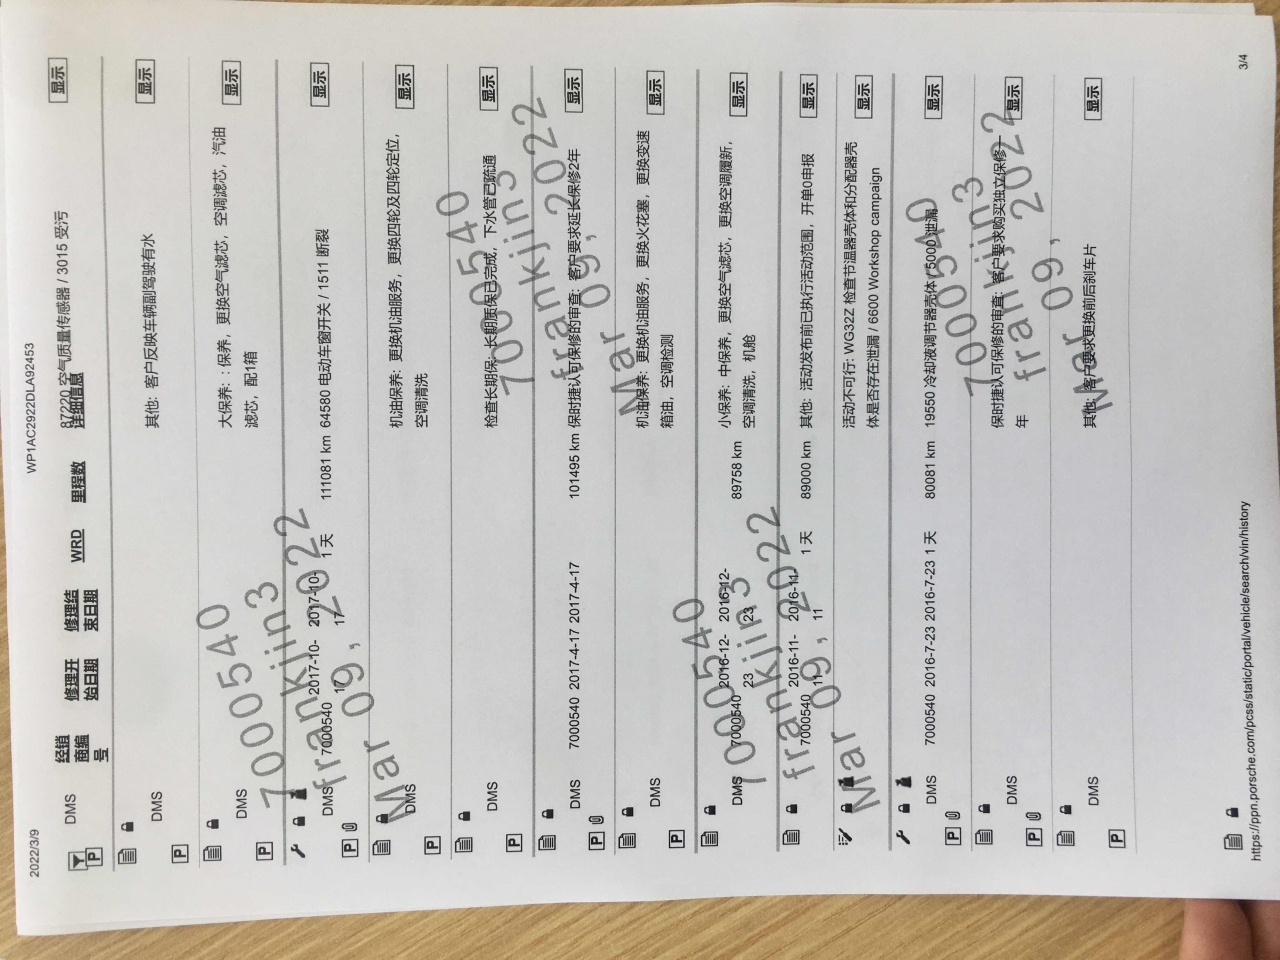 2022/3/9
WP1AC2922DLA92453
经销商编号
修理开始日期
修理结束日期
WRD
里程数
详细信息
DMS
87220 空气质量传感器 / 3015 受污
显示
DMS
其他: 客户反映车辆副驾驶有水
显示
DMS
大保养: : 保养, 更换空气滤芯, 空调滤芯, 汽油
滤芯, 配1箱
显示
DMS 7000540 2017-10-17 2017-10-17 1 天 111081 km 64580 电动车窗开关 / 1511 断裂
显示
DMS
机油保养: 更换机油服务, 更换四轮及四轮定位,
空调清洗
显示
DMS
检查长期保: 长期质保已完成, 下水管已疏通
显示
DMS 7000540 2017-4-17 2017-4-17 101495 km 保时捷认可保修的审查: 客户要求延长保修2年
显示
DMS
机油保养: 更换机油服务, 更换火花塞, 更换变速
箱油, 空调检测
显示
DMS 7000540 2016-12-23 2016-12-23 89758 km 小保养: 中保养, 更换空气滤芯, 更换空调履新,
空调清洗, 机舱
显示
7000540 2016-11-11 2016-11-11 1 天 89000 km 其他: 活动发布前已执行活动范围, 开单0申报
显示
活动不可行: WG32Z 检查节温器壳体和分配器壳
体是否存在泄漏 / 6600 Workshop campaign
显示
DMS 7000540 2016-7-23 2016-7-23 1 天 80081 km 19550 冷却液调节器壳体 / 5000 泄漏
显示
DMS
保时捷认可保修的审查: 客户要求购买独立保修一
年
显示
DMS
其他: 客户要求更换前后刹车片
显示
https://ppn.porsche.com/pcss/static/portal/vehicle/search/vin/history
3/4
7000540
frankjin3
Mar 09, 2022
7000540
frankjin3
Mar 09, 2022
7000540
frankjin3
Mar 09, 2022
7000540
frankjin3
Mar 09, 2022